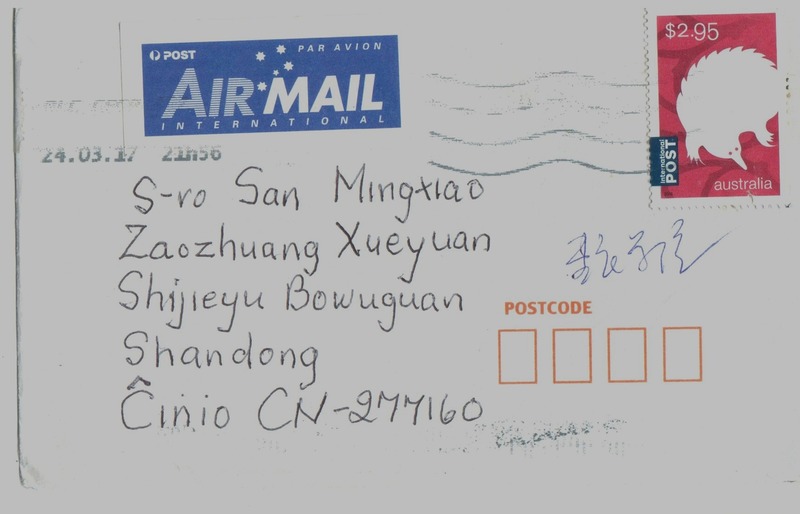 POST PAR AVION
AIR MAIL
INTERNATIONAL
$2.95
24.03.17 21h56
International POST
australia
S-ro San Mingxiao
Zaozhuang Xueyuan
Shijieyu Bowuguan
POSTCODE
Shandong
Ĉinio CN-277160